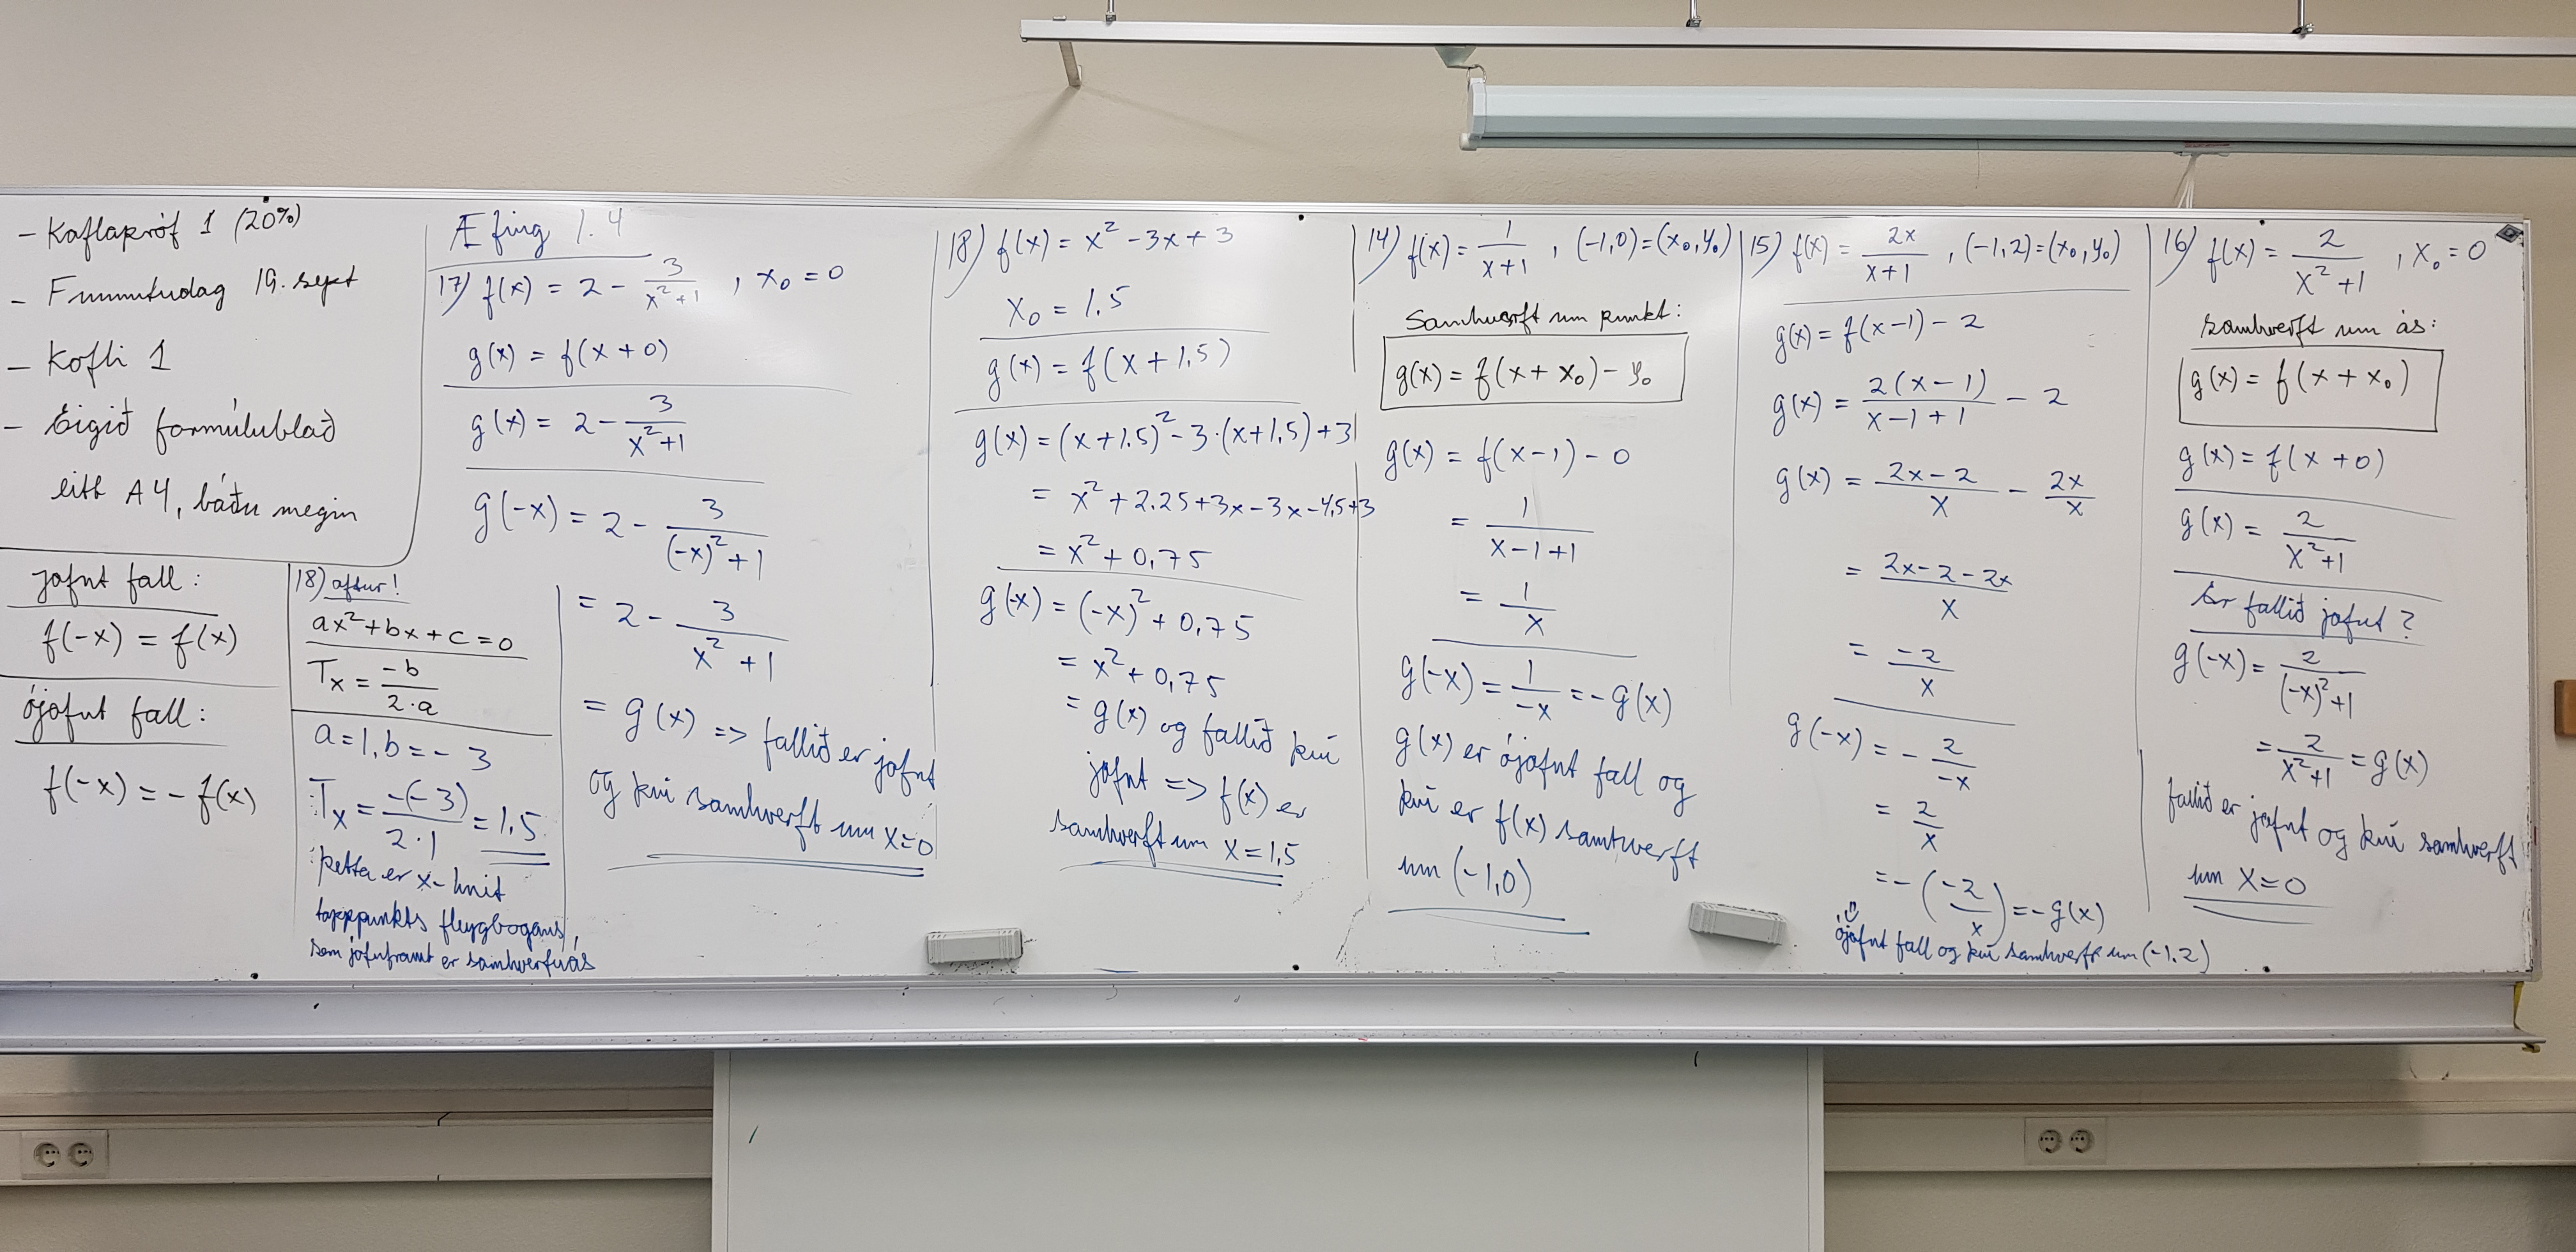 - Kaflapróf 1 (20%)
- Fimmtudag 19. sept
- Kafli 1
- Eigið formúlublað
eitt A4, báðu megin
jafnt fall:
f(-x) = f(x)
ójafnt fall:
f(-x) = - f(x)
18) aftur!
ax²+bx+c=0
Tx = -b/2·a
a=1, b=-3
Tx = -(-3)/2·1 = 1,5
þetta er x-hnit
topppunkts fleygbogans,
sem jafnframt er samhverfuás
Æfing 1.4
17) f(x) = 2 - 3/(x²+1) , x₀ = 0
g(x) = f(x+0)
g(x) = 2 - 3/(x²+1)
g(-x) = 2 - 3/((-x)²+1)
= 2 - 3/(x²+1)
= g(x) => fallið er jafnt
og því samhverft um x=0
18) f(x) = x² - 3x + 3
x₀ = 1.5
g(x) = f(x + 1,5)
g(x) = (x+1.5)² - 3·(x+1,5) + 3
= x² + 2.25 + 3x - 3x - 4,5 + 3
= x² + 0,75
g(-x) = (-x)² + 0,75
= x² + 0,75
= g(x) og fallið því
jafnt => f(x) er
samhverft um x = 1,5
14) f(x) = 1/(x+1) , (-1,0) = (x₀,y₀)
Samhverft um punkt:
g(x) = f(x + x₀) - y₀
g(x) = f(x-1) - 0
= 1/(x-1+1)
= 1/x
g(-x) = 1/-x = -g(x)
g(x) er ójafnt fall og
því er f(x) samhverft
um (-1,0)
15) f(x) = 2x/(x+1) , (-1,2) = (x₀,y₀)
g(x) = f(x-1) - 2
g(x) = 2(x-1)/(x-1+1) - 2
g(x) = (2x-2)/x - 2x/x
= (2x-2-2x)/x
= -2/x
g(-x) = - 2/-x
= 2/x
= -(-2/x) = -g(x)
ójafnt fall og því samhverft um (-1,2)
16) f(x) = 2/(x²+1) , x₀ = 0
samhverft um ás:
g(x) = f(x + x₀)
g(x) = f(x + 0)
g(x) = 2/(x²+1)
Er fallið jafnt?
g(-x) = 2/((-x)²+1)
= 2/(x²+1) = g(x)
fallið er jafnt og því samhverft
um x=0